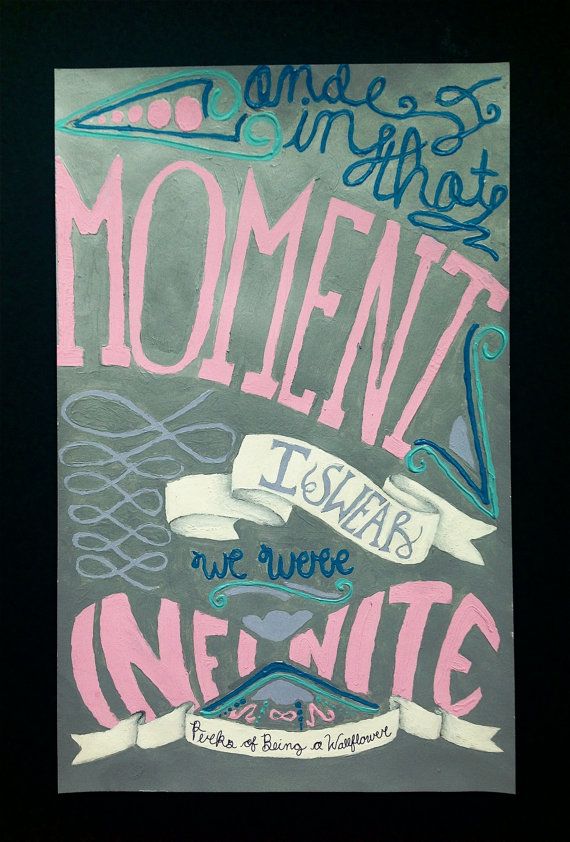 and
in
that
MOMENT
I SWEAR
we were
INFINITE
Perks of Being a Wallflower